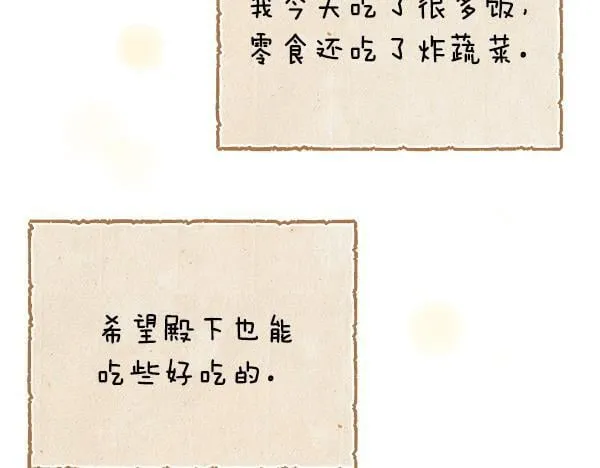 我今天吃了很多饭，
零食还吃了炸蔬菜。
希望殿下也能
吃些好吃的。